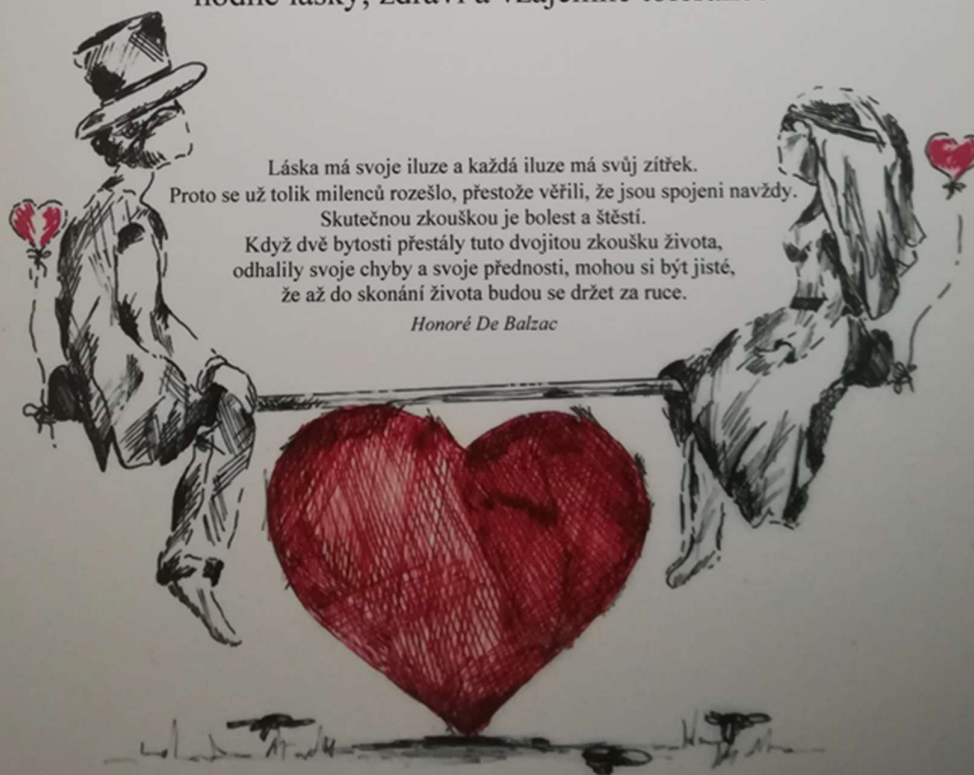 hodně lásky, zdraví a vzájemné
Láska má svoje iluze a každá iluze má svůj zítřek.
Proto se už tolik milenců rozešlo, přestože věřili, že jsou spojeni navždy.
Skutečnou zkouškou je bolest a štěstí.
Když dvě bytosti přestály tuto dvojitou zkoušku života,
odhalily svoje chyby a svoje přednosti, mohou si být jisté,
že až do skonání života budou se držet za ruce.
Honoré De Balzac